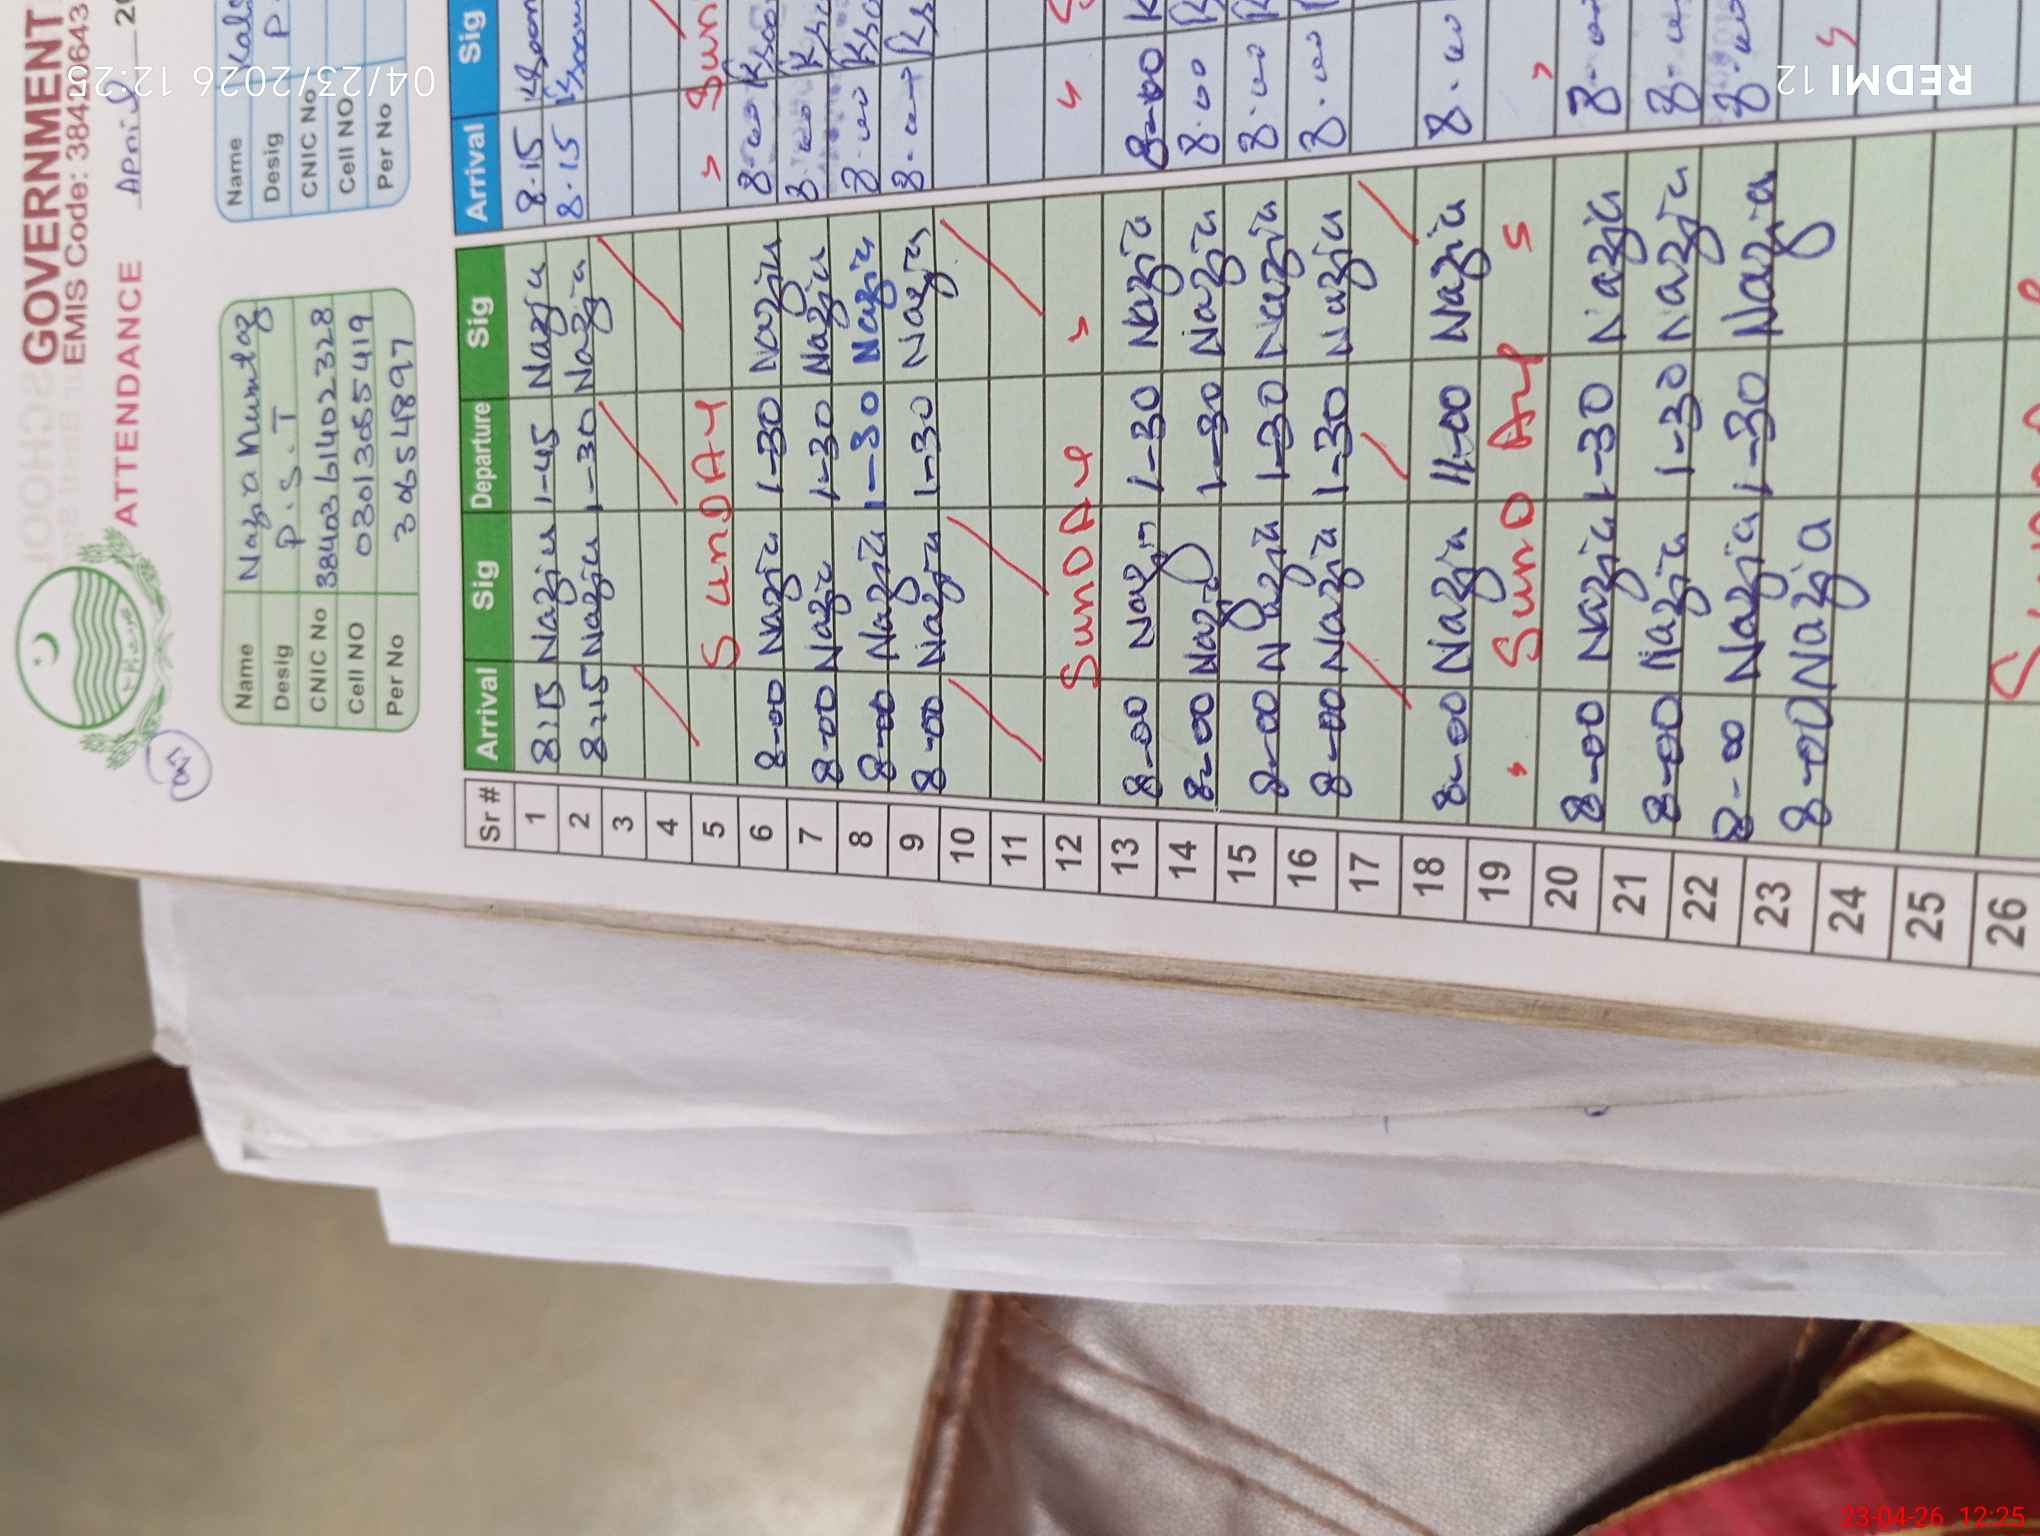 GOVERNMENT
EMIS Code: 38420643
ATTENDANCE April 20
Name Nazia Mumtaz
Desig P.S.T
CNIC No 3840361402328
Cell NO 03013055419
Per No 30654897
Name
Desig P.
CNIC No
Cell NO
Per No
Sr # Arrival Sig Departure Sig Arrival Sig
1 8:15 Nazia 1-45 Nazia 8.15
2 8:15 Nazia 1-30 Nazia 8.15
3
4
5 SunDAY Sun
6 8-00 Nazia 1-30 Nazia 8-00
7 8-00 Nazia 1-30 Nazia 8-00
8 8-00 Nazia 1-30 Nazia 8-00
9 8-00 Nazia 1-30 Nazia 8-00
10
11
12 SunDAY
13 8-00 Nazia 1-30 Nazia 8-00
14 8-00 Nazia 1-30 Nazia 8.00
15 8-00 Nazia 1-30 Nazia 8.00
16 8-00 Nazia 1-30 Nazia 8.00
17
18 8-00 Nazia 11-00 Nazia 8.00
19 SunDAY S
20 8-00 Nazia 1-30 Nazia 8-00
21 8-00 Nazia 1-30 Nazia 8-00
22 8-00 Nazia 1-30 Nazia 8-00
23 8-00 Nazia
24
25
26
04/23/2026 12:25
REDMI 12
23-04-26 12:25